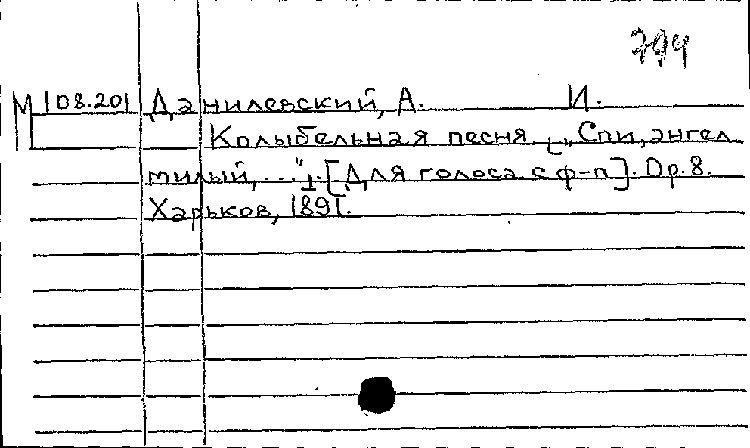 794
М 108.201 Данилевский, А. И.
Колыбельная песня. [„Спи, ангел
милый, ..."]. [Для голоса с ф-п]. Op. 8.
Харьков, 1891.